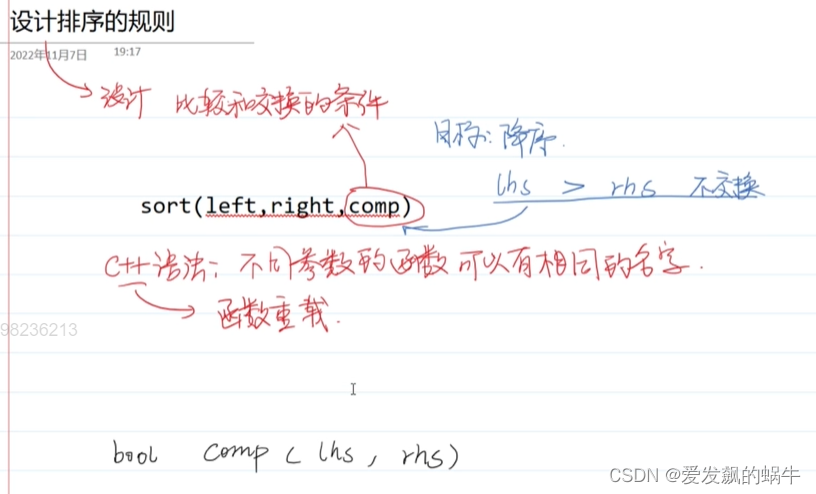 设计排序的规则
2022年11月7日 19:17
设计 比较和交换的条件
目标:降序.
lhs > rhs 不交换
sort(left,right,comp)
C++语法:不同参数的函数可以有相同的名字.
函数重载.
98236213
bool comp(lhs, rhs)
CSDN @爱发飙的蜗牛